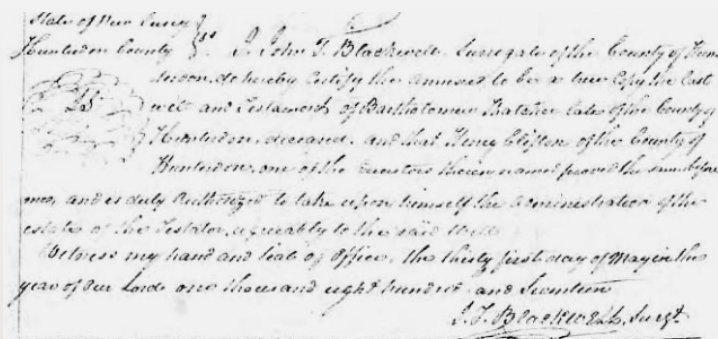 State of New Jersey
Hunterdon County } ss. I, John T. Blackwell, Surrogate of the County of Hun
terdon, do hereby Certify the annexed to be a true Copy the Last
LS will and Testament of Bartholomew Thatcher late of the County of
Hunterdon, deceased, and that Henry Clifton of the County of
Hunterdon, one of the executors therein named proved the same before
me, and is duly Authorized to take upon himself the administration of the
estate of the Testator, agreeably to the said Will.
Witness my hand and Seal of Office, the thirty first day of May in the
year of our Lord one thousand eight hundred and Seventeen
J. T. Blackwell, Surgt.